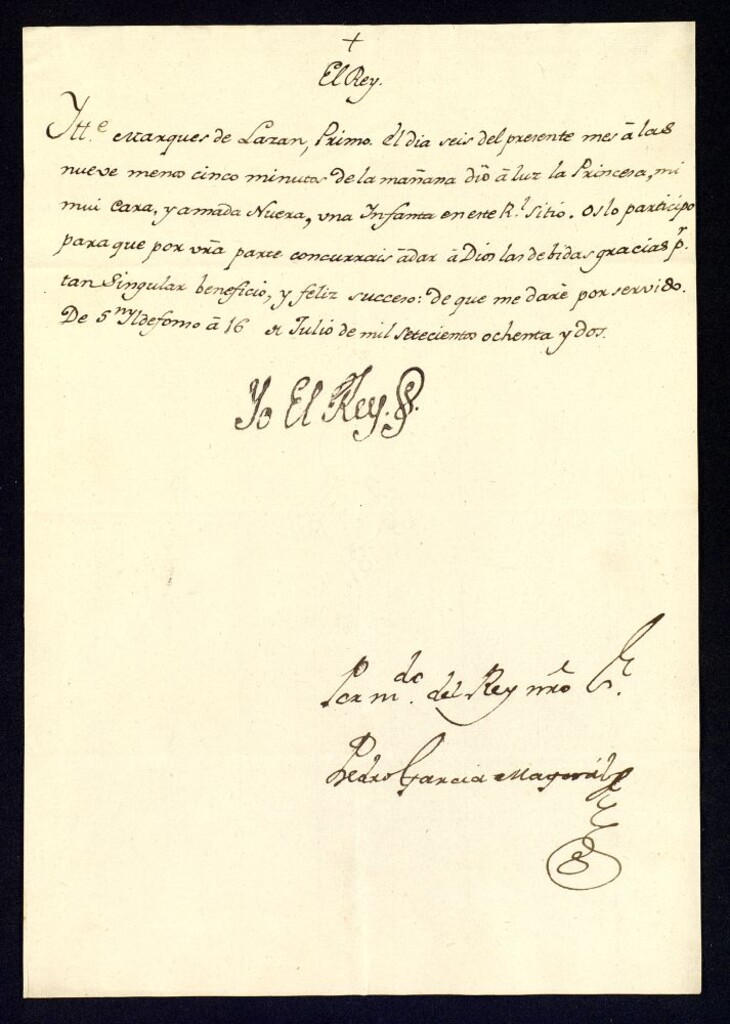 +
El Rey.
Itt.e Marques de Lazan, Primo. El dia seis del presente mes â las
nueve menos cinco minutos de la mañana diô â luz la Princesa, mi
mui cara, y amada Nuera, vna Infanta en este R.l Sitio. Os lo participo
para que por vrâ parte concurrais âdar â Dios las debidas gracias p.r
tan Singular beneficio, y feliz succeso: de que me darê por servido.
De S.n Yldefonso â 16 de Julio de mil setecientos ochenta y dos.
Yo El Rey.
Por m.do del Rey nrô S.r
Pedro Garcia Mayoral